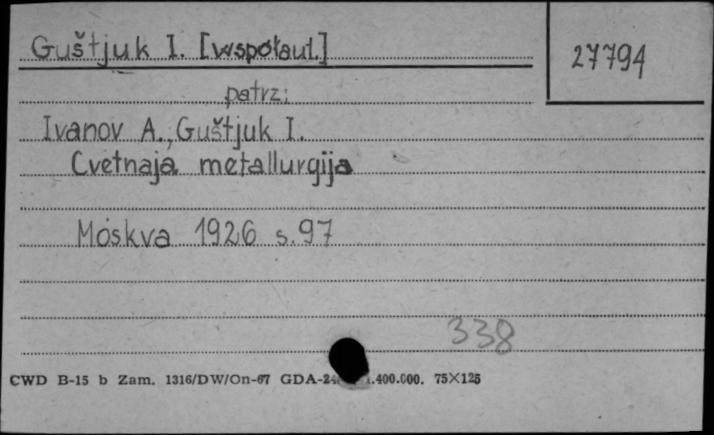 Guštjuk I. [współaut.]
27794
patrz:
Ivanov A., Guštjuk I.
Cvetnaja metallurgija
Moskva 1926 s. 97
338
CWD B-15 b Zam. 1316/DW/On-67 GDA-24 .400.000. 75×125